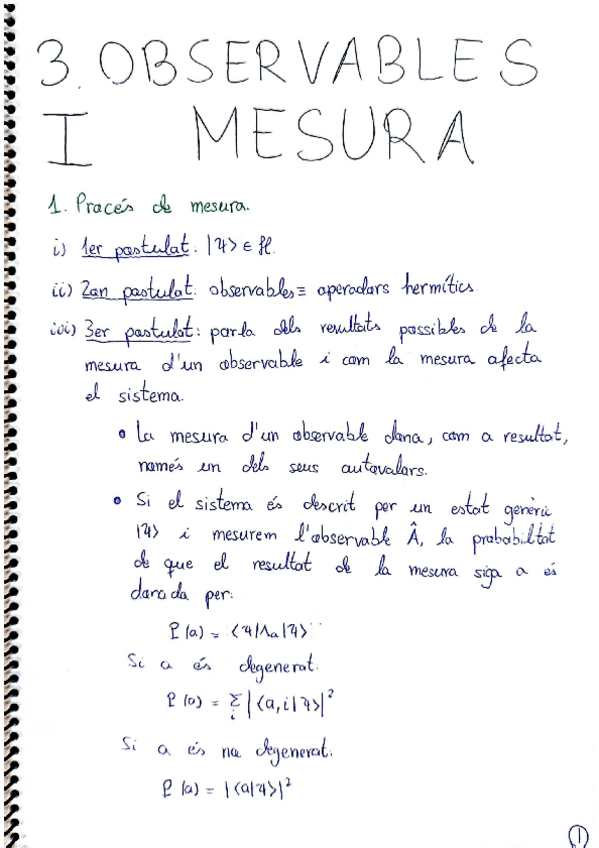 3. OBSERVABLES
I MESURA
1. Procés de mesura.
i) 1er postulat. |Ψ⟩ ∈ ℋ.
ii) 2on postulat: observables ≡ operadors hermítics.
iii) 3er postulat: parla dels resultats possibles de la
mesura d'un observable i com la mesura afecta
el sistema.
• La mesura d'un observable dona, com a resultat,
només un dels seus autovalors.
• Si el sistema és descrit per un estat genèric
|Ψ⟩ i mesurem l'observable Â, la probabiltat
de que el resultat de la mesura siga a és
donada per:
P(a) = ⟨Ψ|Λa|Ψ⟩
Si a és degenerat.
P(a) = Σi |⟨a,i|Ψ⟩|²
Si a és no degenerat.
P(a) = |⟨a|Ψ⟩|²
1